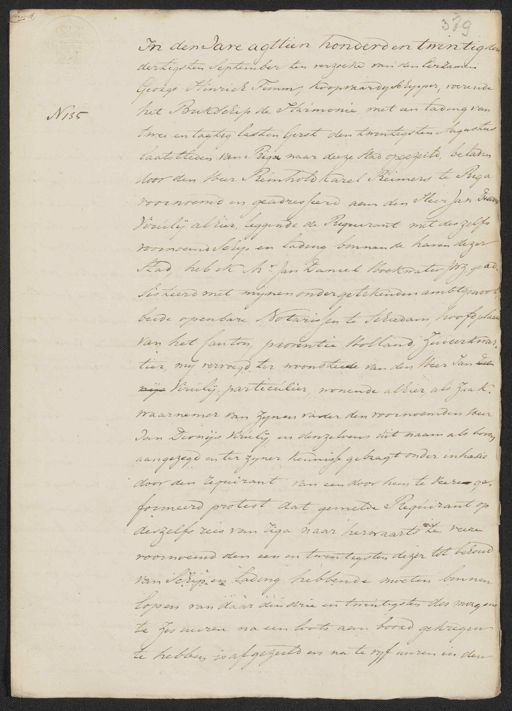 339
In den Jare agttien honderd en twintig den
dertigsten September ten verzoeke van den Eerzamen
Georg Hinrich Tomm, koopvaardyschipper, voerende
N 135
het Buikschip de Harmonie met een lading van
twee en tagtig lasten Gerst den twintigsten Augustus
laatstleden van Riga naar deze stad opgezeild, beladen
door den Heer Reinhold Karel Reimers te Riga
voornoemd en geadresseerd aan den Heer Jan
Kruiy alhier, leggende de Requirant met deszelfs
voornoemde schip en lading binnen de haven dezer
Stad, heb ik Mr. Jan Daniel geas-
sisteerd met mynen ondergetekenden ambtgenoot
beide openbare Notarissen te Schiedam, hoofdplaats
van het Canton, provintie Holland, Zuiderkwar-
tier, my vervoegd ter woonstede van den Heer Jan
Kruiy, particulier, wonende alhier, als zaak-
waarnemer van zynen vader den voornoemden Heer
Jan Dionys Kruiy, en denzelven uit naam als boven
aangezegd en ter zyner kennisse gebragt onder inhasie
door den requirant van een door hem te ge-
formeerd protest dat gemelde Requirant op
deszelfs reis van Riga naar herwaarts te veere
voornoemd den een en twintigsten dezer tot behoud
van Schip en Lading hebbende moeten binnen
lopen van daar den drie en twintigsten des morgens
te zes uuren na een loots aan boord gekregen
te hebben is afgezeild en na te vyf uuren in den